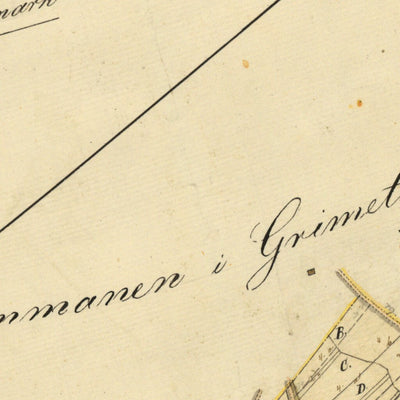 mark
mmanen i Grimet
B.
C.
D.